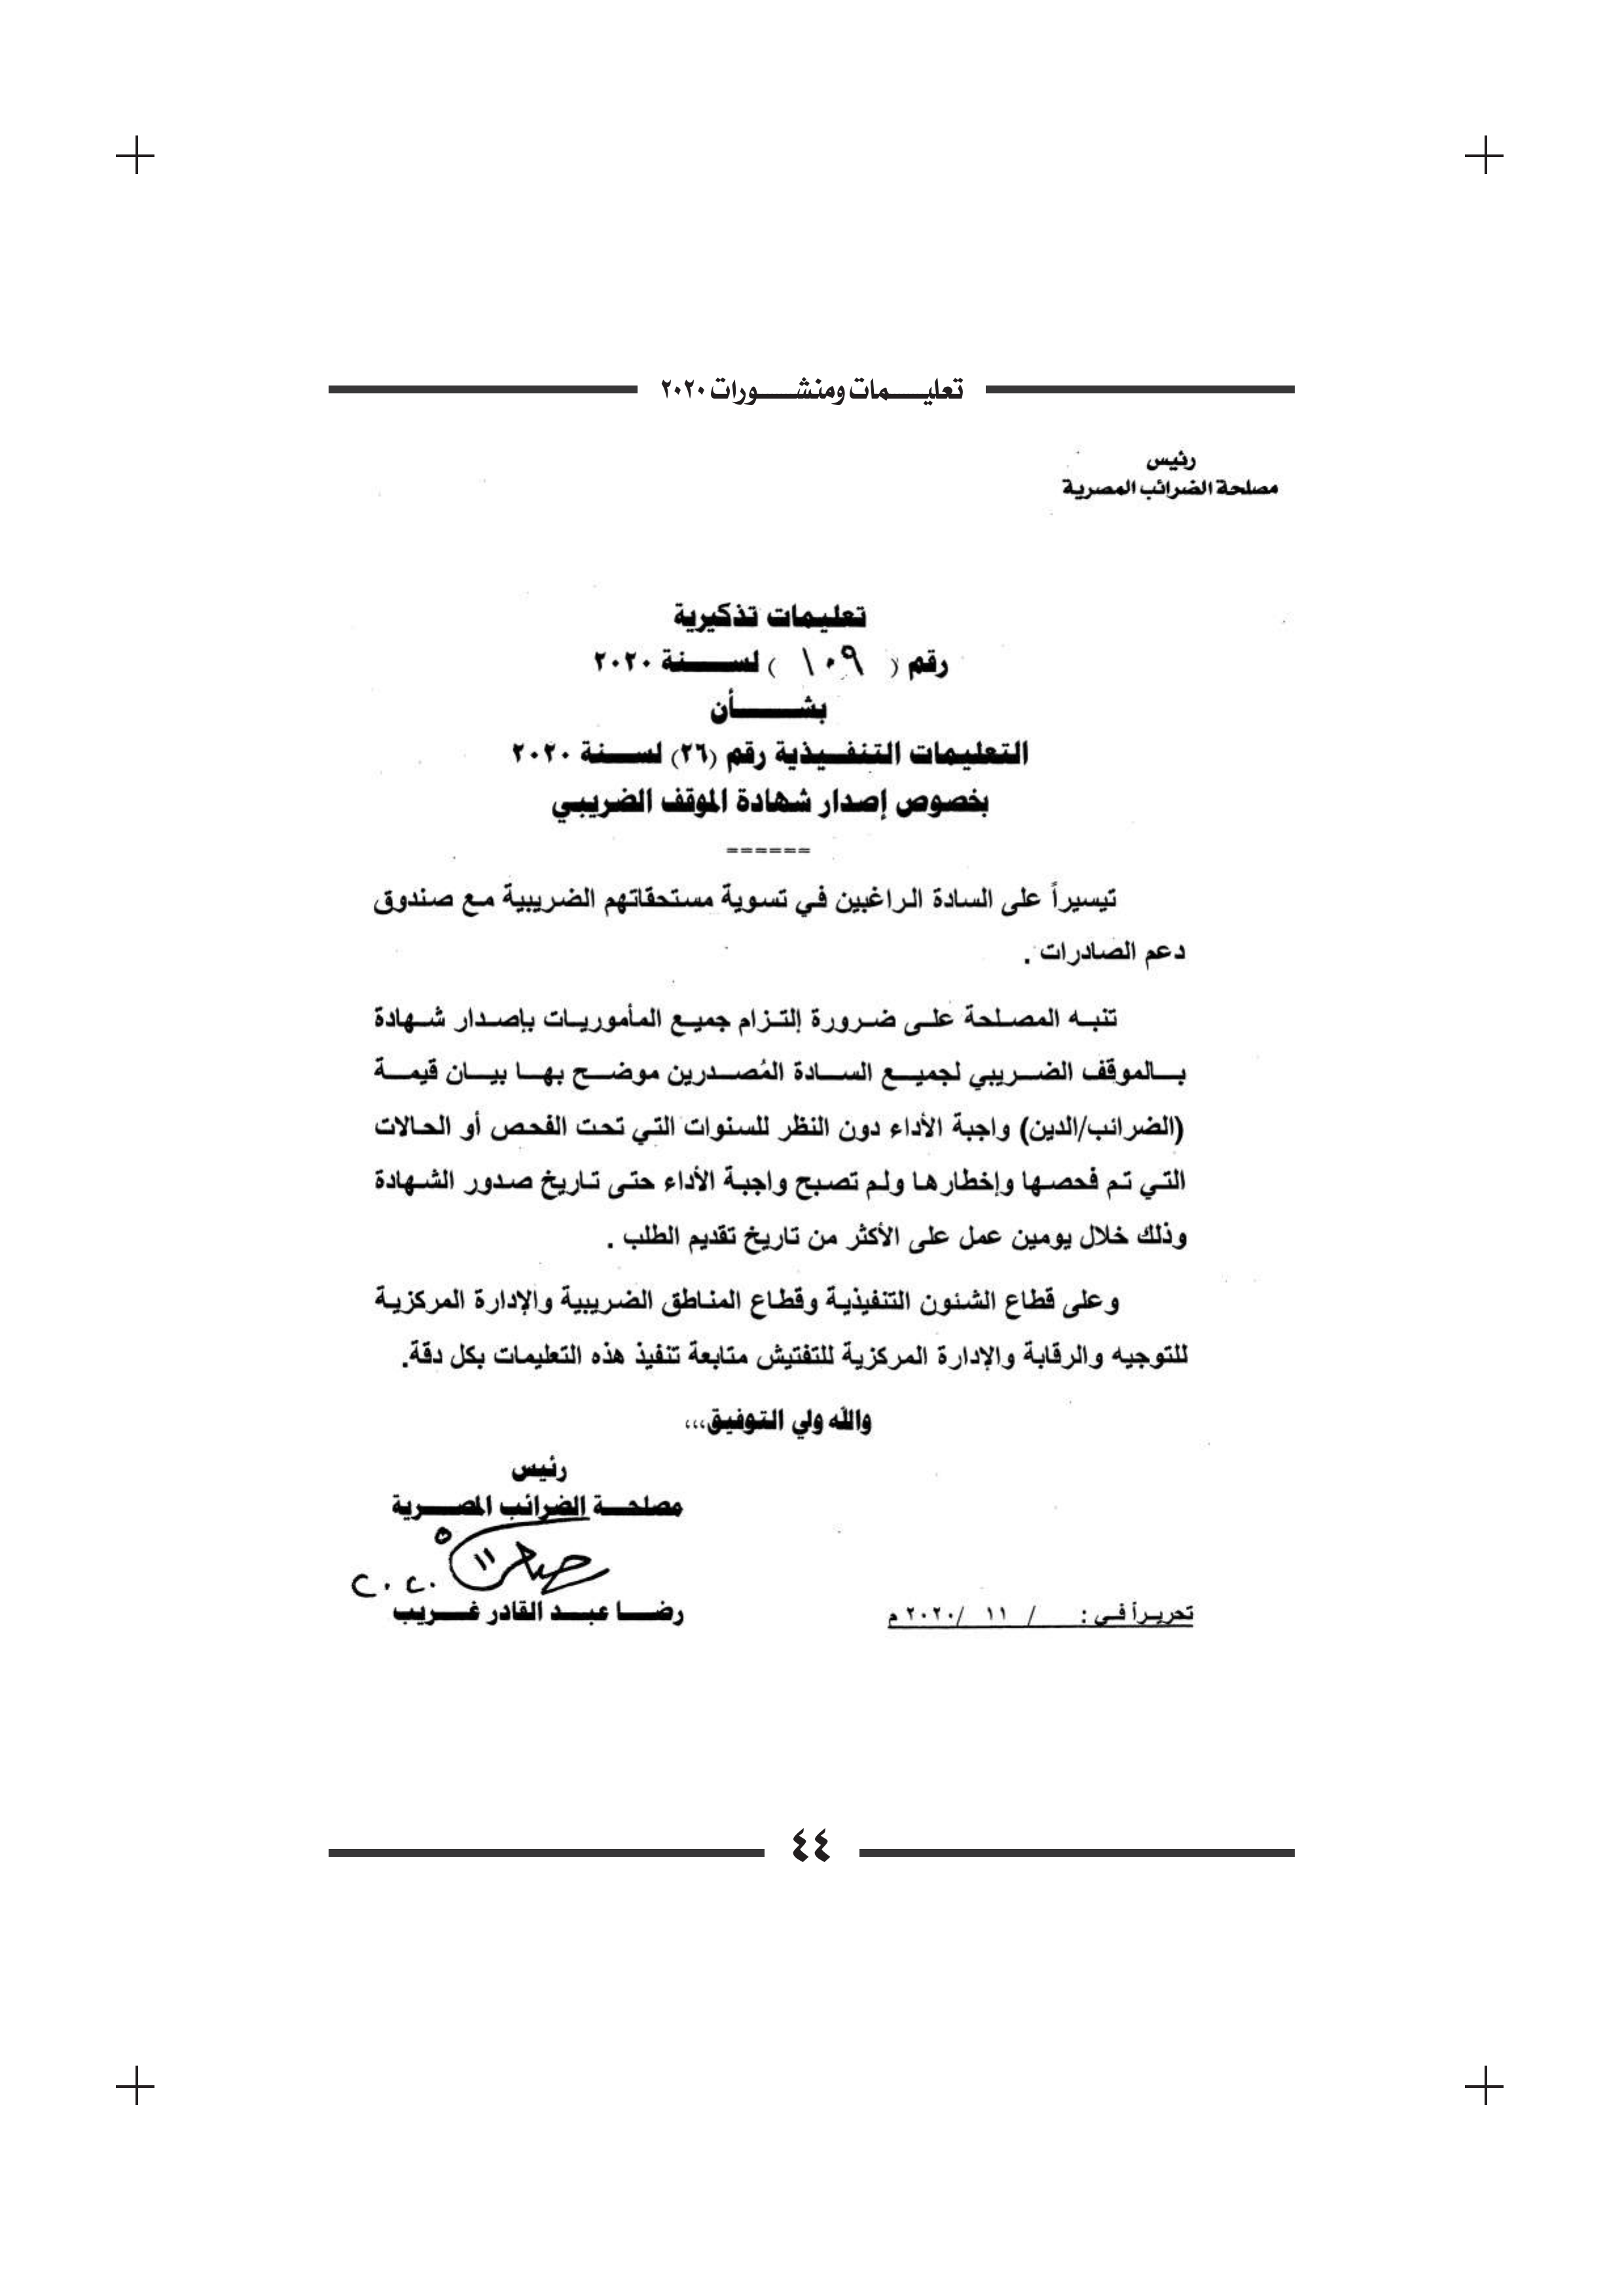 تعليمات ومنشورات ٢٠٢٠
رئيس
مصلحة الضرائب المصرية
تعليمات تذكيرية
رقم ( ١٠٩ ) لسنة ٢٠٢٠
بشأن
التعليمات التنفيذية رقم (٢٦) لسنة ٢٠٢٠
بخصوص إصدار شهادة الموقف الضريبي
======
تيسيراً على السادة الراغبين في تسوية مستحقاتهم الضريبية مع صندوق
دعم الصادرات .
تنبه المصلحة على ضرورة إلتزام جميع المأموريات بإصدار شهادة
بالموقف الضريبي لجميع السادة المُصدرين موضح بها بيان قيمة
(الضرائب/الدين) واجبة الأداء دون النظر للسنوات التي تحت الفحص أو الحالات
التي تم فحصها وإخطارها ولم تصبح واجبة الأداء حتى تاريخ صدور الشهادة
وذلك خلال يومين عمل على الأكثر من تاريخ تقديم الطلب .
وعلى قطاع الشئون التنفيذية وقطاع المناطق الضريبية والإدارة المركزية
للتوجيه والرقابة والإدارة المركزية للتفتيش متابعة تنفيذ هذه التعليمات بكل دقة.
والله ولي التوفيق،،،
رئيس
مصلحة الضرائب المصرية
رضا عبد القادر غريب
تحريراً في : / ١١ /٢٠٢٠ م
٤٤